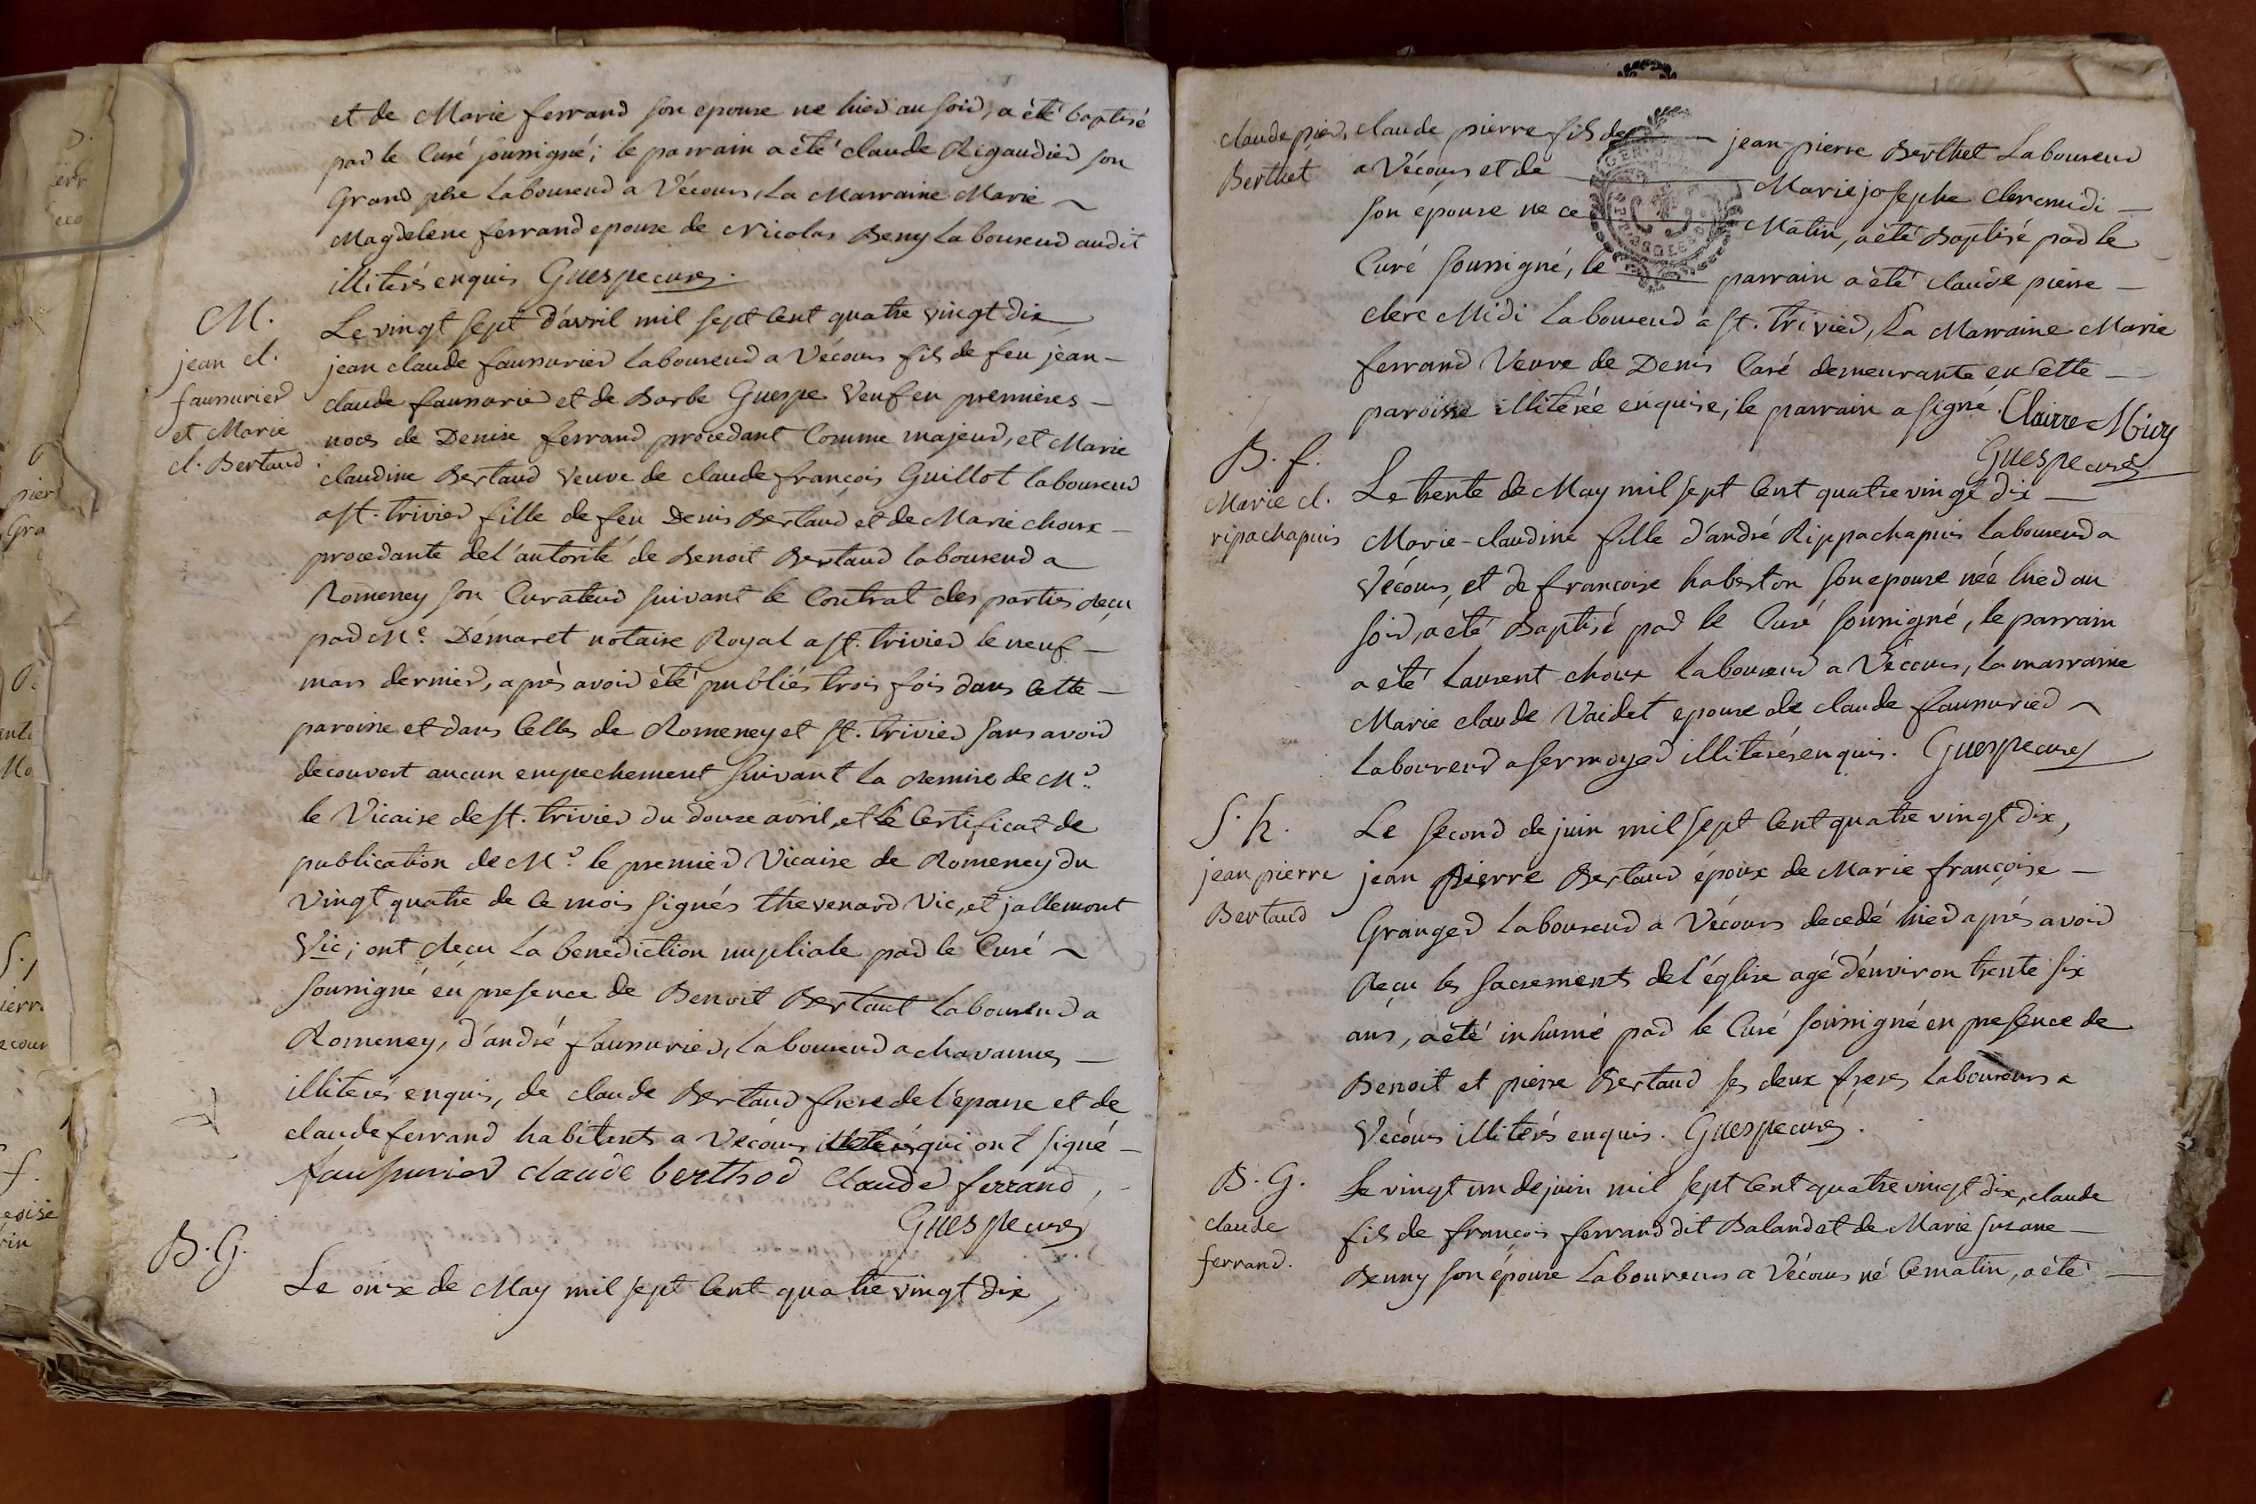 et de Marie ferrand son epouse ne hier au soir, a été baptisé
par le Curé soussigné; le parrain a été claude Rigaudier son
Grand pere laboureur a Vécours, La Marraine Marie
Magdelene ferrand epouse de Nicolas Beny laboureur audit
illiterés enquis Guespe curé.
M.
jean cl.
faussurier
et Marie
cl. Bertaud
Le vingt sept d'avril mil sept cent quatre vingt dix
jean claude faussurier laboureur a Vécours fils de feu jean-
claude faussurier et de Barbe Guespe Veuf en premieres
noces de Denise ferrand procedant Comme majeur, et Marie
claudine Bertaud Veuve de claude françois Guillot laboureur
a St. trivier fille de feu Denis Bertaud et de Marie choux
procedante de l'autorité de Benoit Bertaud laboureur a
Romeney son Curateur suivant le Contrat des parties reçu
par Me. Démaret notaire Royal a St. trivier le neuf
mars dernier, après avoir été publiés trois fois dans cette
paroisse et dans celles de Romeney et St. trivier sans avoir
decouvert aucun empechement suivant la remise de Mr.
le Vicaire de St. trivier du douze avril, et le Certificat de
publication de Mr. le premier Vicaire de Romeney du
vingt quatre de ce mois signés thevenard Vic, et jallemont
Vic; ont reçu la benediction nuptiale par le Curé
soussigné en presence de Benoit Bertaut laboureur a
Romeney, d'andré faussurier, laboureur a chavannes
illiterés enquis, de claude Bertaud frere de l'epouse et de
claude ferrand habitents a Vécours qui ont signé
faussurier claude berthod Claude ferrand
Guespe curé
B. G.
Le onze de May mil sept cent quatre vingt dix,
claude pier.
Berthet
claude pierre fils de jean-pierre Berthet Laboureur
a Vécours et de Marie josephe Clercmidi
son épouse ne ce Matin, a été Baptisé par le
Curé soussigné, le parrain a été claude pierre
clerc Midi laboureur a St. trivier, La Marraine Marie
ferrand Veuve de Denis Caré demeurante en cette
paroisse illiterée enquise, le parrain a signé. Clairre Midy
Guespe curé
B. f.
Marie cl.
ripachapuis
Le trente de May mil sept cent quatre vingt dix
Marie-claudine fille d'andré Rippachapuis laboureur a
Vécours, et de françoise haberton son epouse née hier au
soir, a été Baptisé par le Curé soussigné, le parrain
a été Laurent choux laboureur a Vécours, la marraine
Marie claude Vaidet epouse de claude faussurier
laboureur a sermoyer illiterés enquis. Guespe curé
S. h.
jean pierre
Bertaud
Le second de juin mil sept cent quatre vingt dix,
jean Pierre Bertaud époux de Marie françoise
Granger laboureur a Vécours decedé hier après avoir
Reçu les sacrements de l'église agé d'environ trente six
ans, a été inhumé par le Curé soussigné en presence de
Benoit et pierre Bertaud ses deux freres laboureurs a
Vécours illiterés enquis. Guespe curé.
B. G.
claude
ferrand.
Le vingt un de juin mil sept cent quatre vingt dix, claude
fils de françois ferrand dit Baland et de Marie susane
Benny son épouse laboureurs a Vécours né ce matin, a été